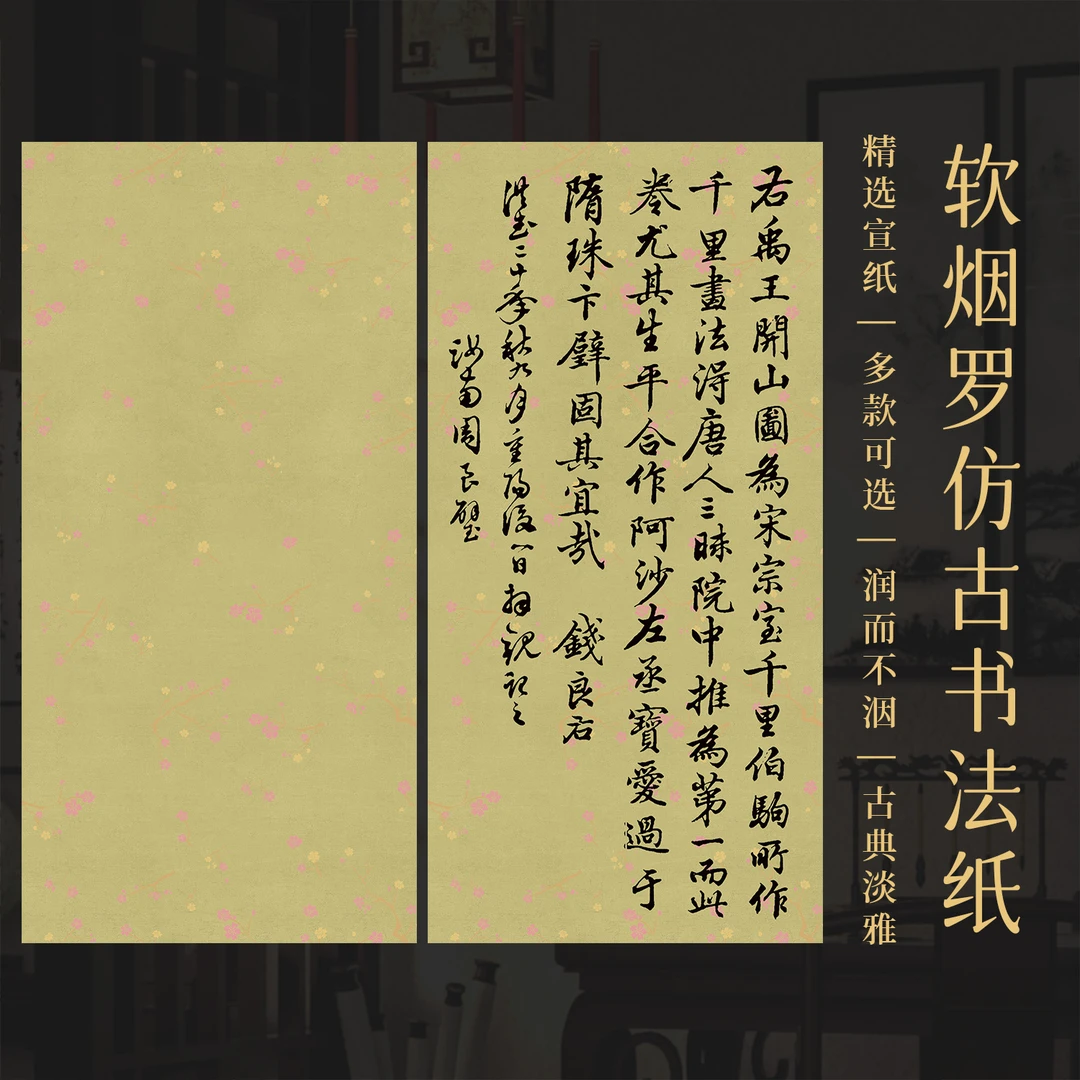 软烟罗仿古书法纸
精选宣纸｜多款可选｜润而不洇｜古典淡雅
右禹王開山圖為宋宗室千里伯駒所作
千里畫法得唐人三昧院中推為第一而此
卷尤其生平合作阿沙左丞寶愛過于
隋珠卞璧固其宜哉 錢良右
洪武二十年秋九月重陽後一日拜觀記之
汝南周良璧